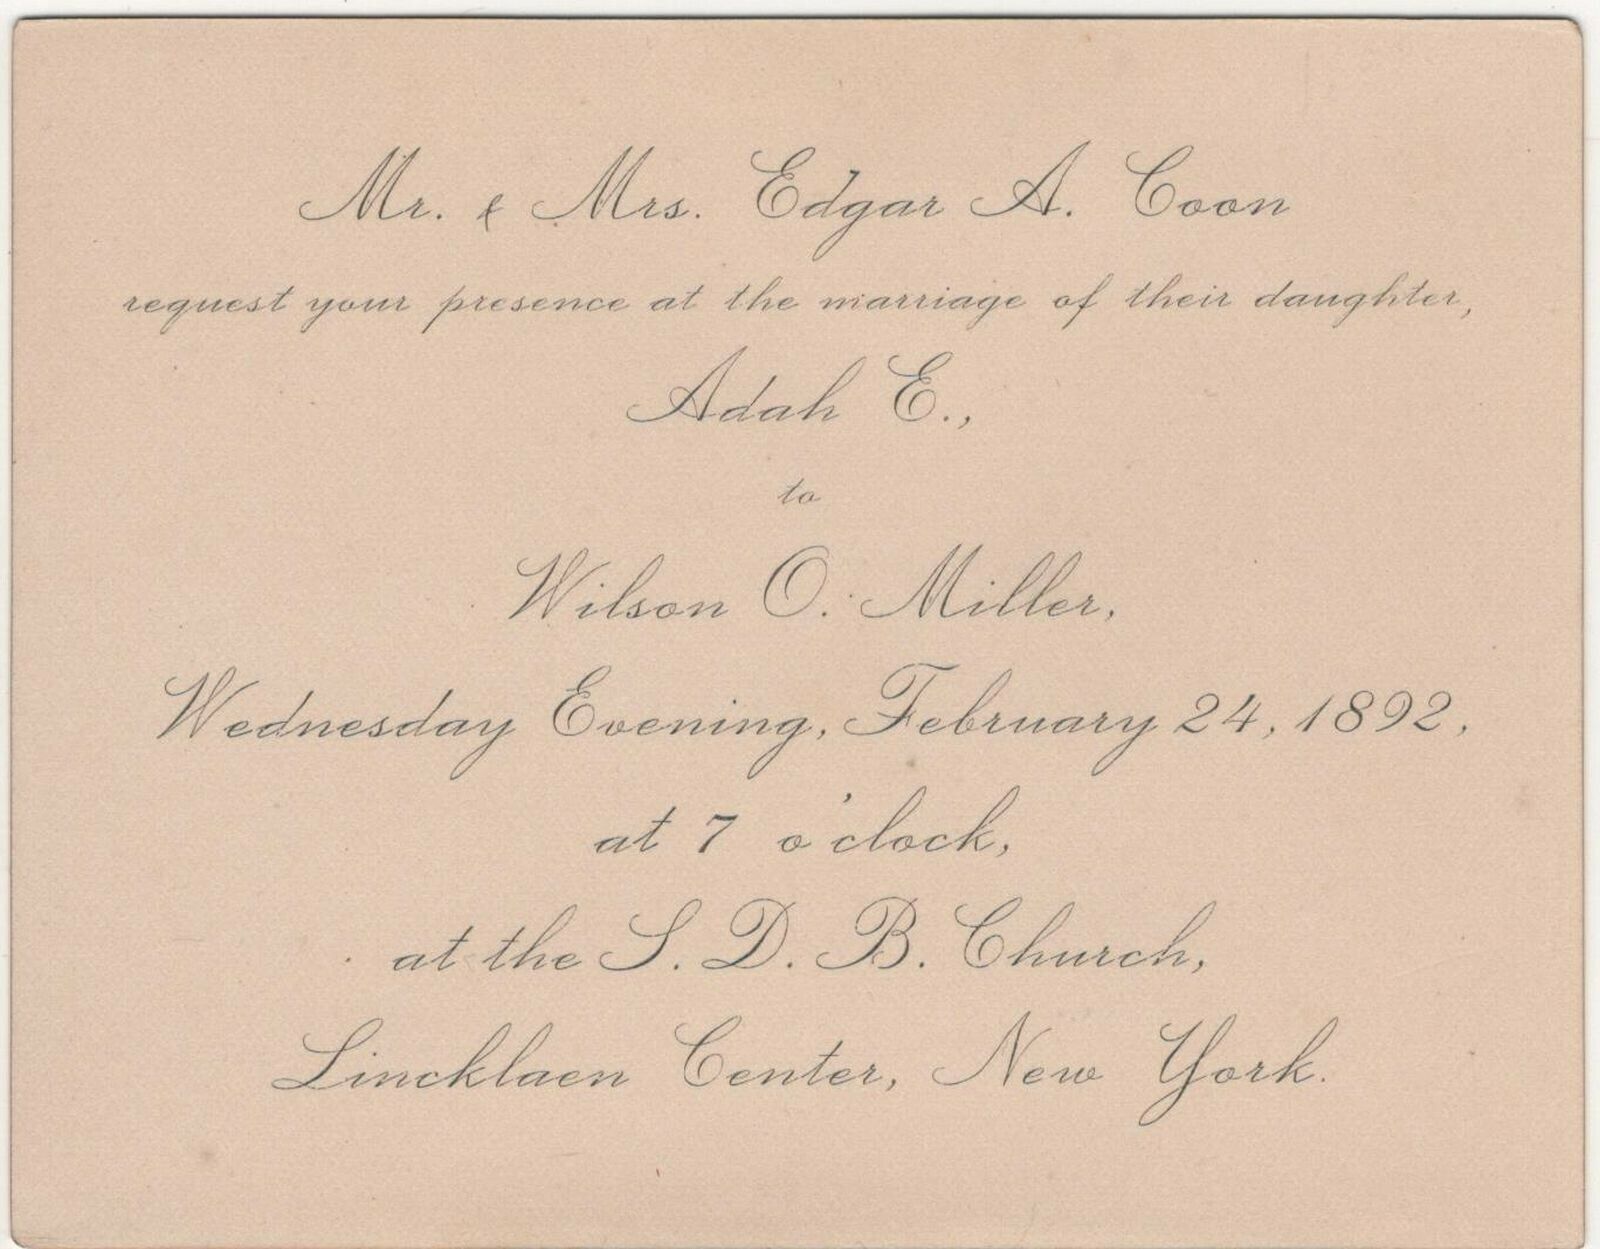 Mr. & Mrs. Edgar A. Coon
request your presence at the marriage of their daughter,
Adah E.,
to
Wilson O. Miller,
Wednesday Evening, February 24, 1892,
at 7 o'clock,
at the S. D. B. Church,
Lincklaen Center, New York.